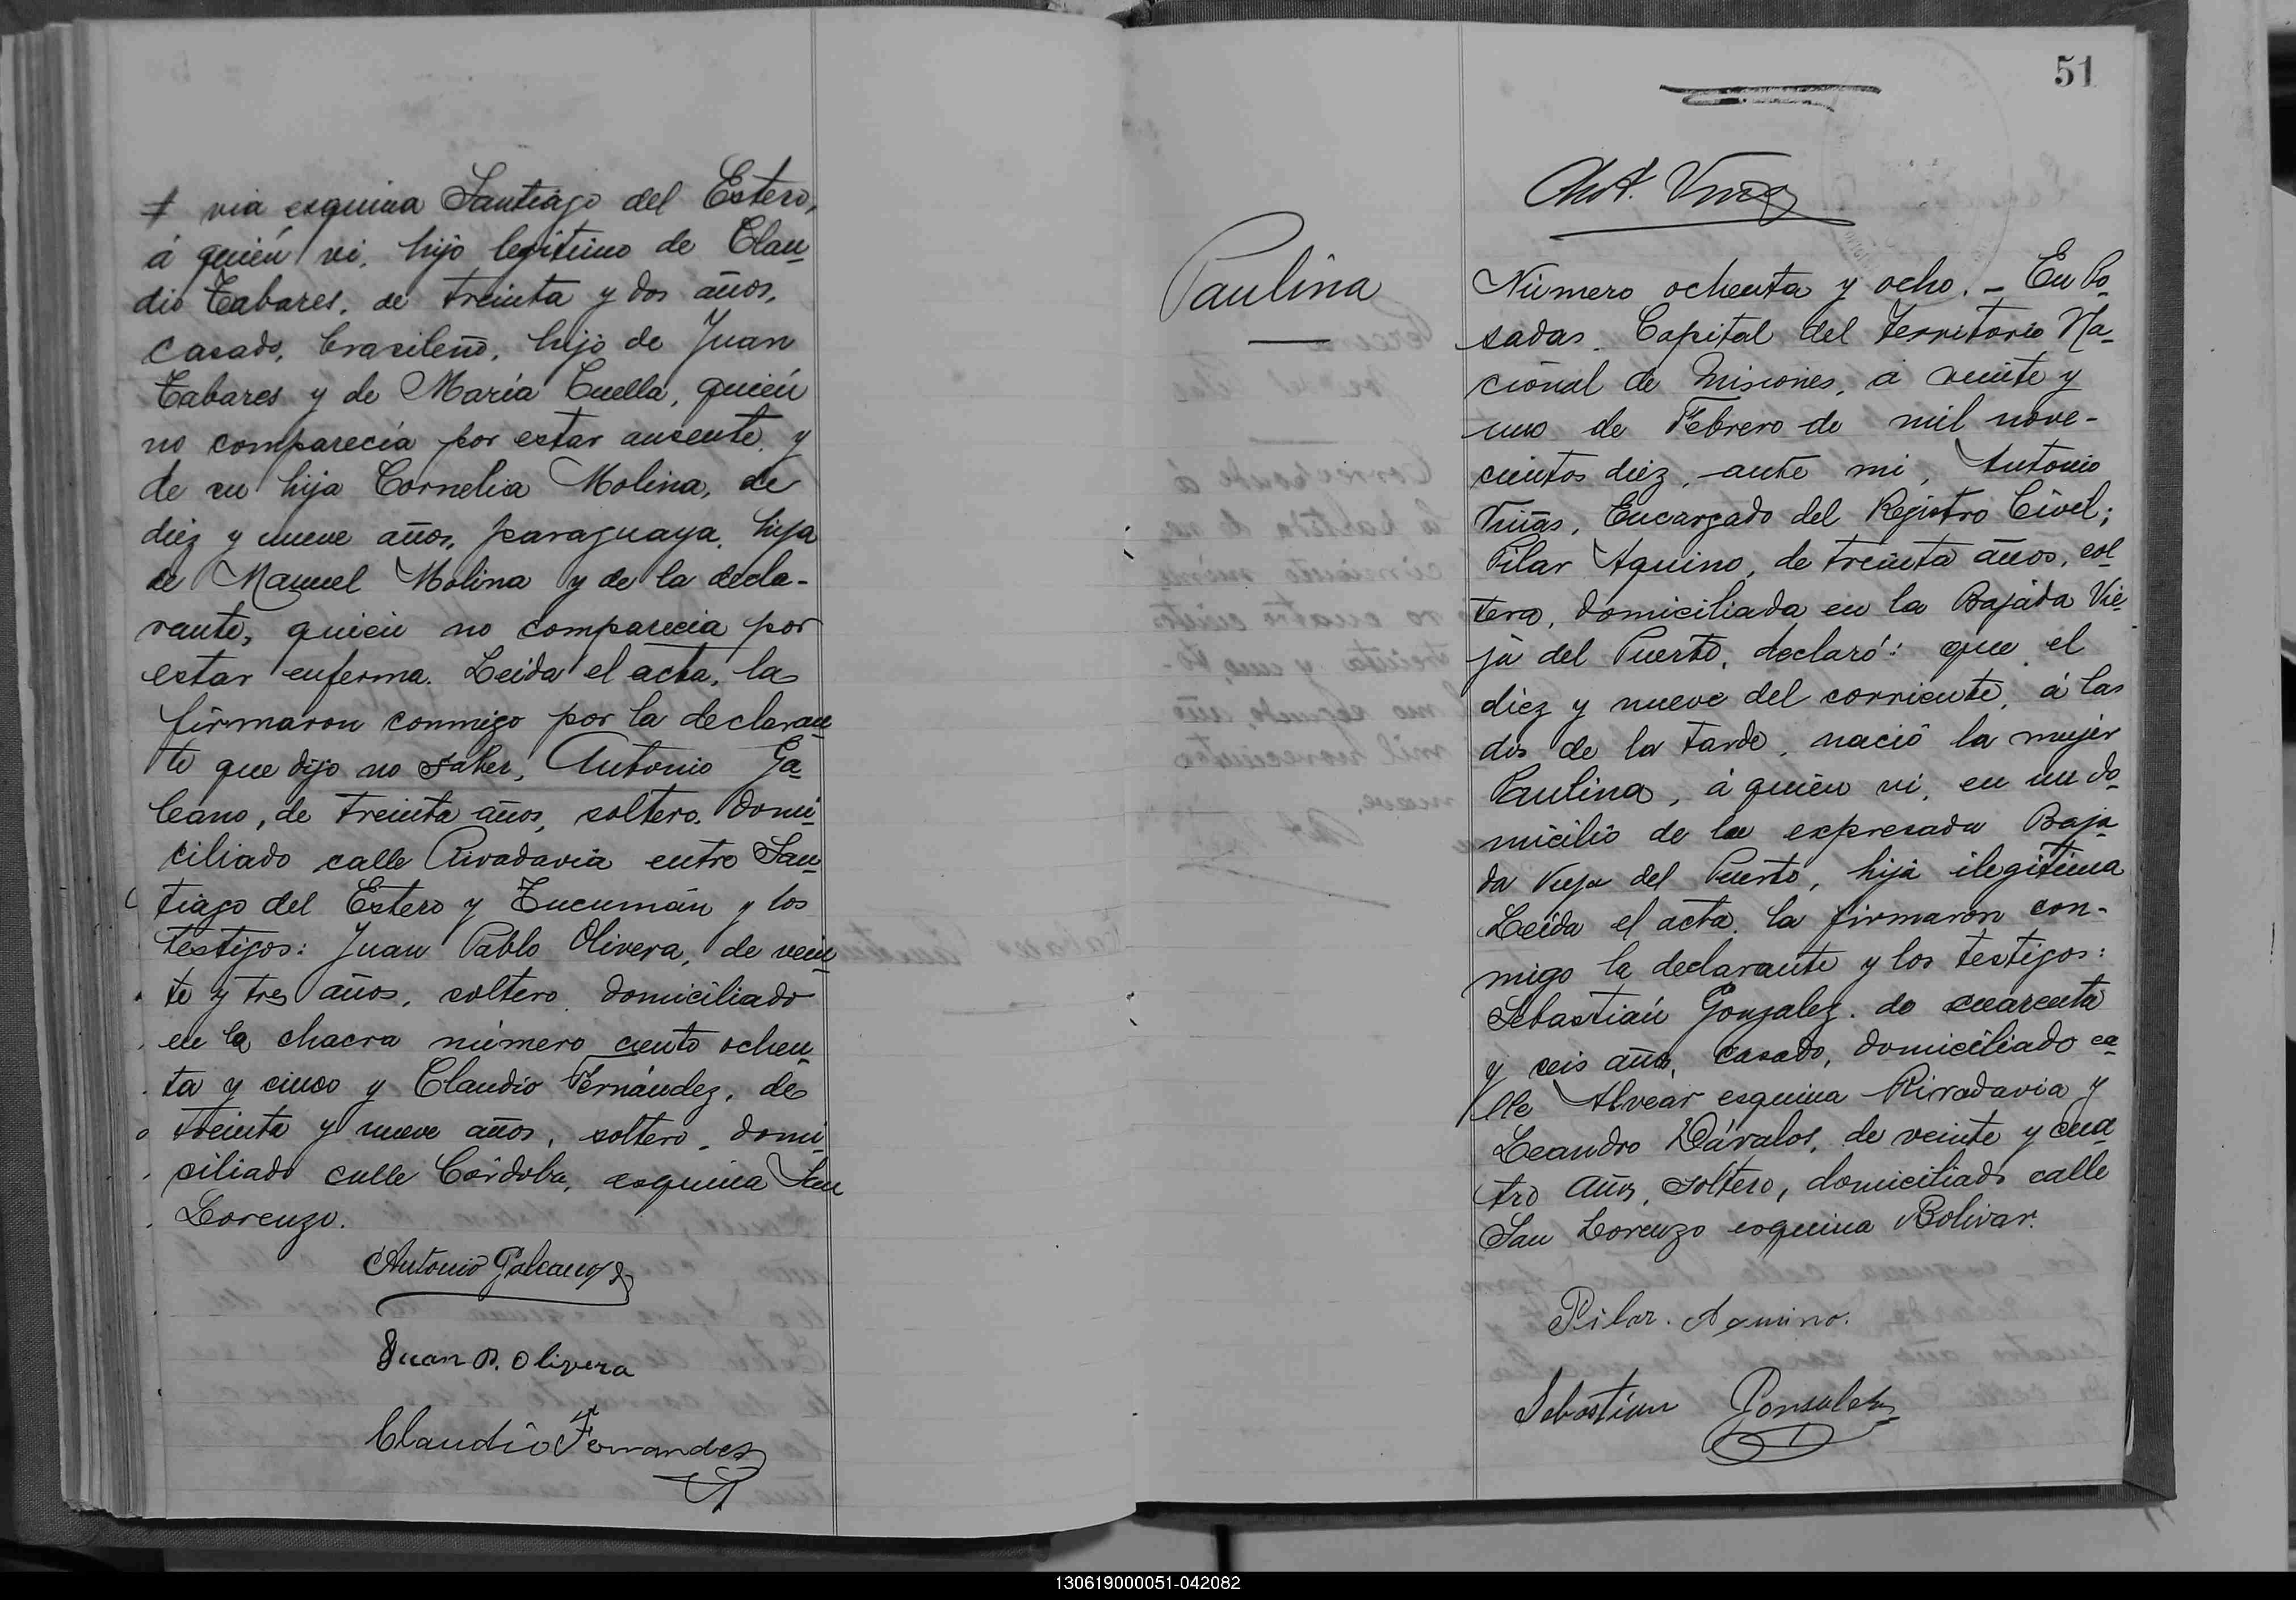 via esquina Santiago del Estero,
á quién vi, hijo legitimo de Clau-
dio Tabares, de treinta y dos años,
casado, brasileño, hijo de Juan
Tabares y de María Cuella, quién
no comparecía por estar ausente, y
de su hija Cornelia Molina, de
diez y nueve años, paraguaya, hija
de Manuel Molina y de la decla-
rante, quien no comparecía por
estar enferma. Leida el acta, la
firmaron conmigo por la declaran-
te que dijo no saber, Antonio Ga-
leano, de treinta años, soltero, domi-
ciliado calle Rivadavia entre San-
tiago del Estero y Tucumán y los
testigos: Juan Pablo Olivera, de vein-
te y tres años, soltero, domiciliado
en la chacra número ciento ochen-
ta y cinco y Claudio Fernández, de
treinta y nueve años, soltero, domi-
ciliado calle Córdoba, esquina San
Lorenzo.
Antonio Galeano
Juan P. Olivera
Claudio Fernandez
51
Paulina
Número ochenta y ocho. - En Po-
sadas, Capital del Territorio Na-
cional de Misiones, á veinte y
uno de Febrero de mil nove-
cientos diez, ante mi, Antonio
Viñas, Encargado del Registro Civil;
Pilar Aquino, de treinta años, sol-
tera, domiciliada en la Bajada Vie-
ja del Puerto, declaró: que el
diez y nueve del corriente, á las
dos de la tarde, nació la mujer
Paulina, á quién vi, en un do-
micilio de la expresada Baja-
da Vieja del Puerto, hija ilegitima
Leída el acta, la firmaron con-
migo la declarante y los testigos:
Sebastián Gonzalez, de cuarenta
y seis años, casado, domiciliado ca-
lle Alvear esquina Rivadavia y
Leandro Dávalos, de veinte y cua-
tro años, soltero, domiciliado calle
San Lorenzo esquina Bolivar.
Pilar. Aquino.
Sebastian Gonsalez
130619000051-042082